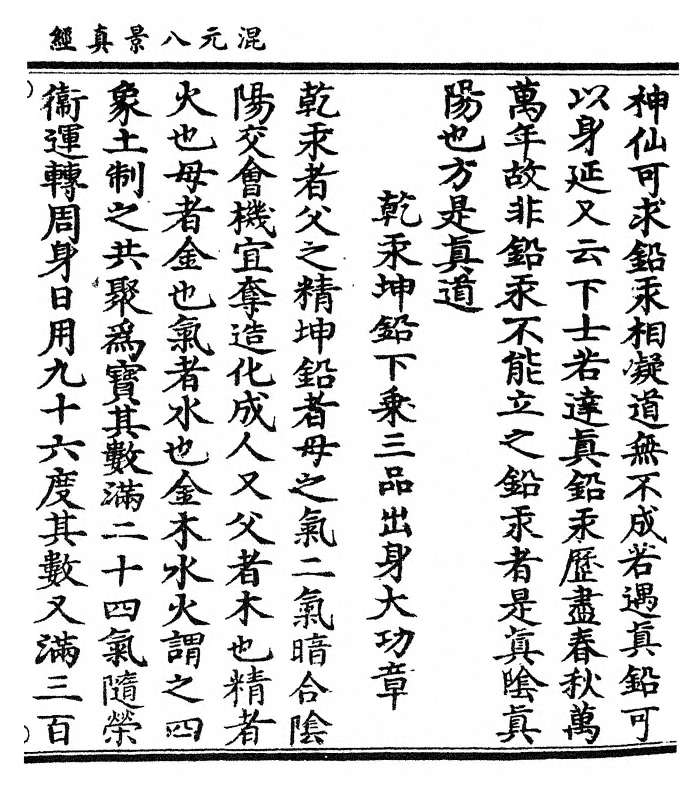 混元八景真經
神仙可求鉛汞相凝道無不成若遇眞鉛可
以身延又云下士若達眞鉛汞歷盡春秋萬
萬年故非鉛汞不能立之鉛汞者是眞陰眞
陽也方是眞道
乾汞坤鉛下乘三品出身大功章
乾汞者父之精坤鉛者母之氣二氣暗合陰
陽交會機宜奪造化成人又父者木也精者
火也母者金也氣者水也金木水火謂之四
象土制之共聚爲寶其數滿二十四氣隨榮
衞運轉周身日用九十六度其數又滿三百